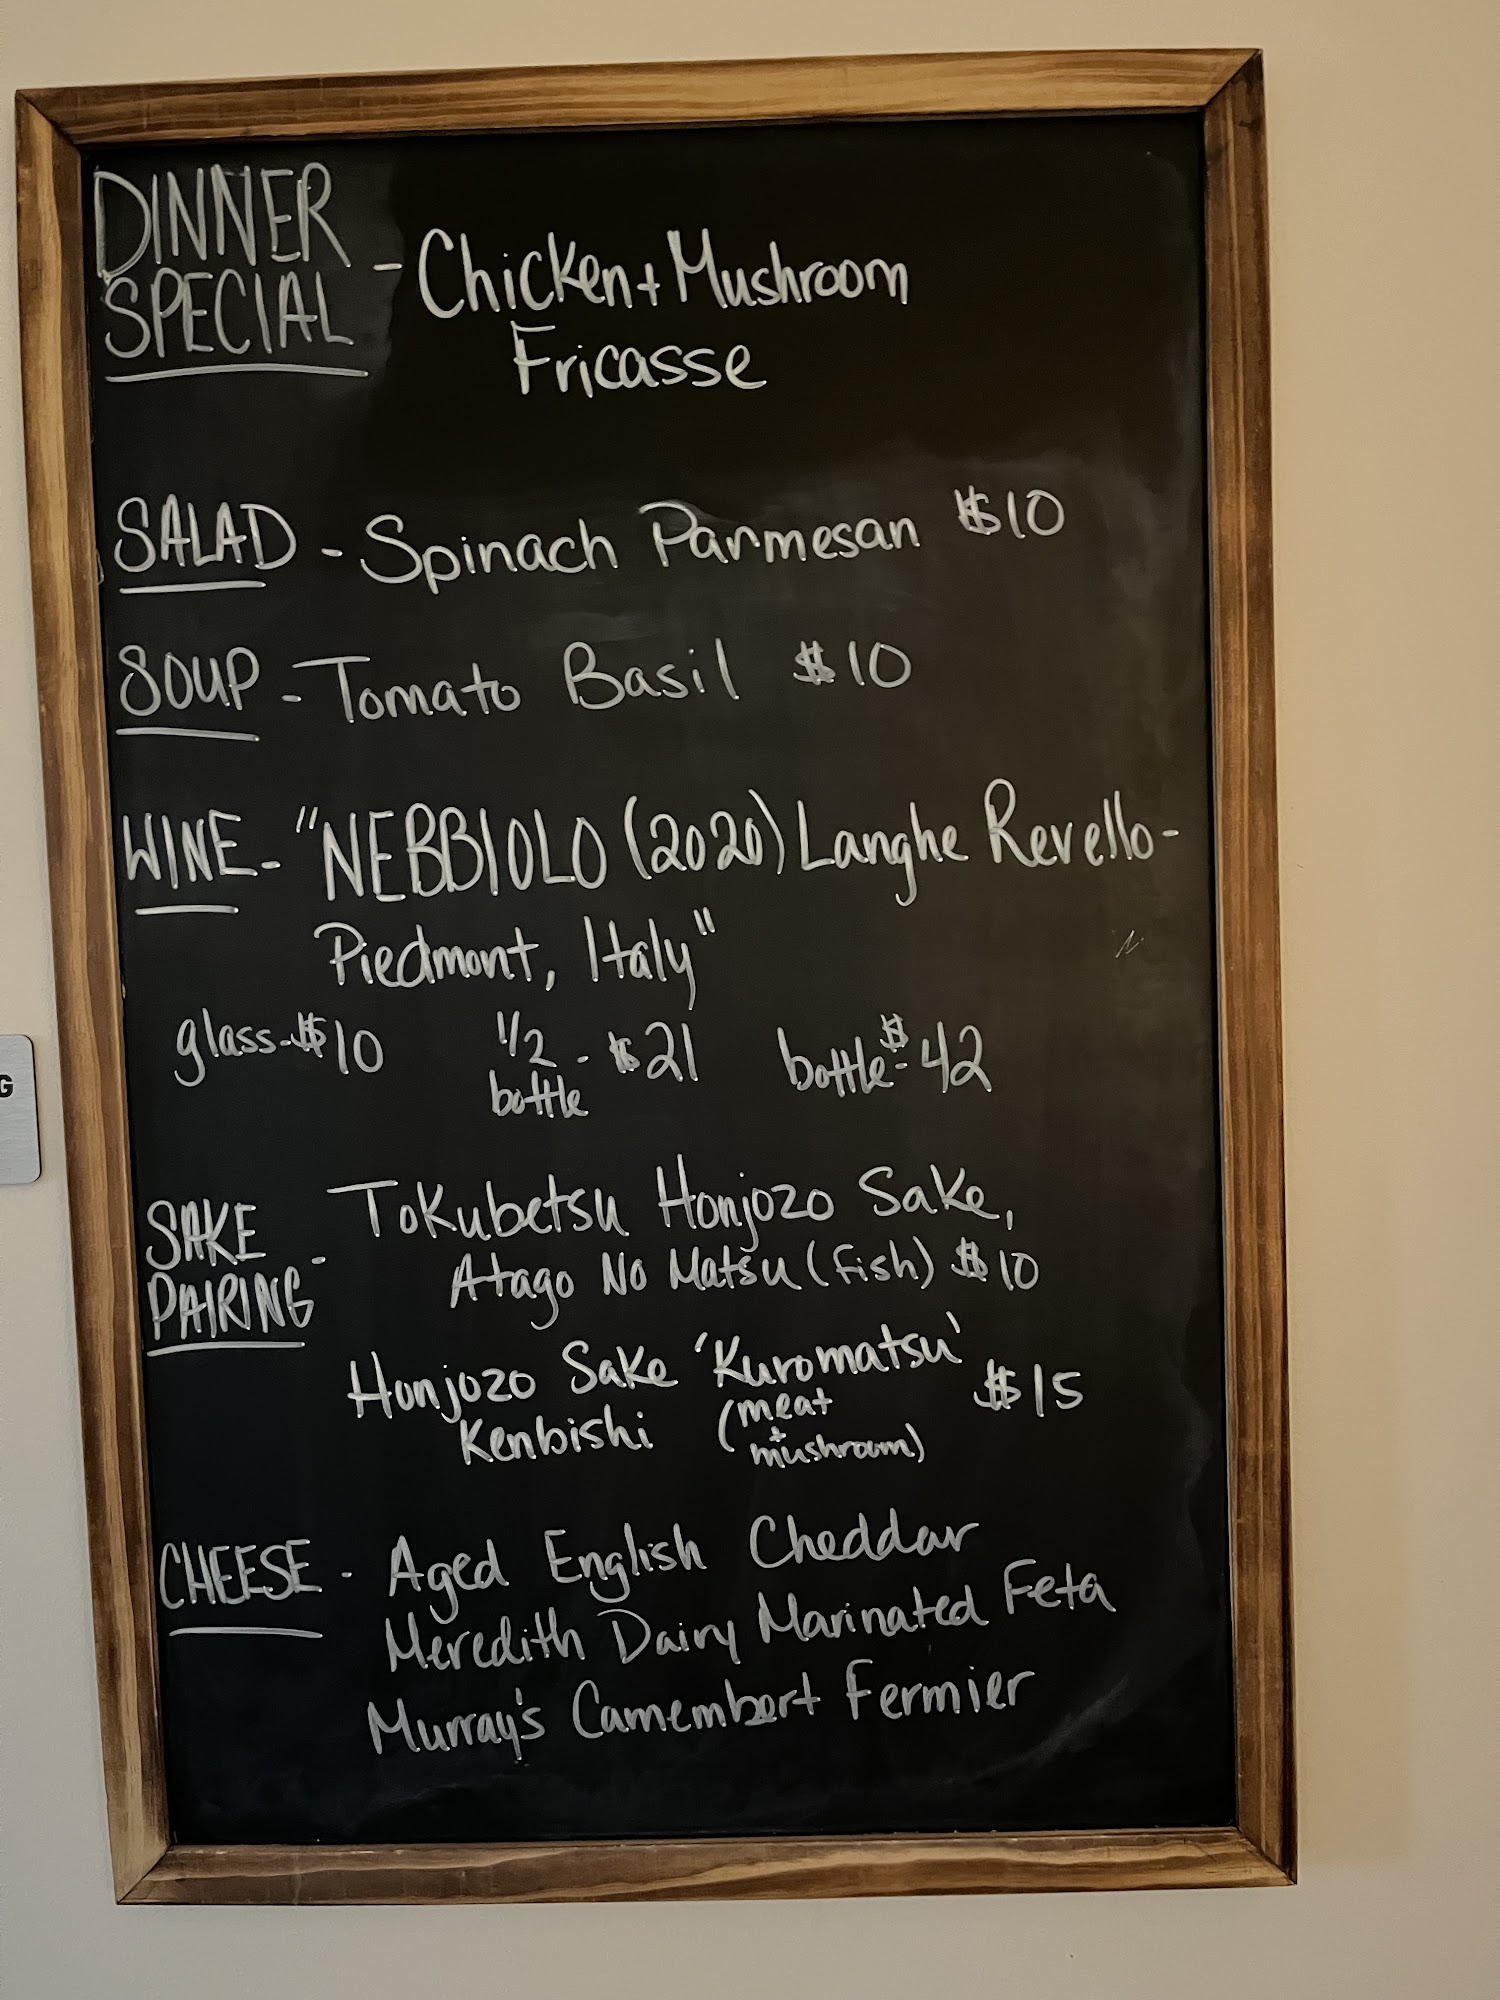 DINNER
SPECIAL - Chicken + Mushroom
Fricasse
SALAD - Spinach Parmesan $10
SOUP - Tomato Basil $10
WINE - "NEBBIOLO (2020) Langhe Revello -
Piedmont, Italy"
glass - $10 1/2 bottle - $21 bottle - $42
SAKE
PAIRING - Tokubetsu Honjozo Sake,
Atago No Matsu (fish) $10
Honjozo Sake 'Kuromatsu'
Kenbishi (meat + mushroom) $15
CHEESE - Aged English Cheddar
Meredith Dairy Marinated Feta
Murray's Camembert Fermier
G